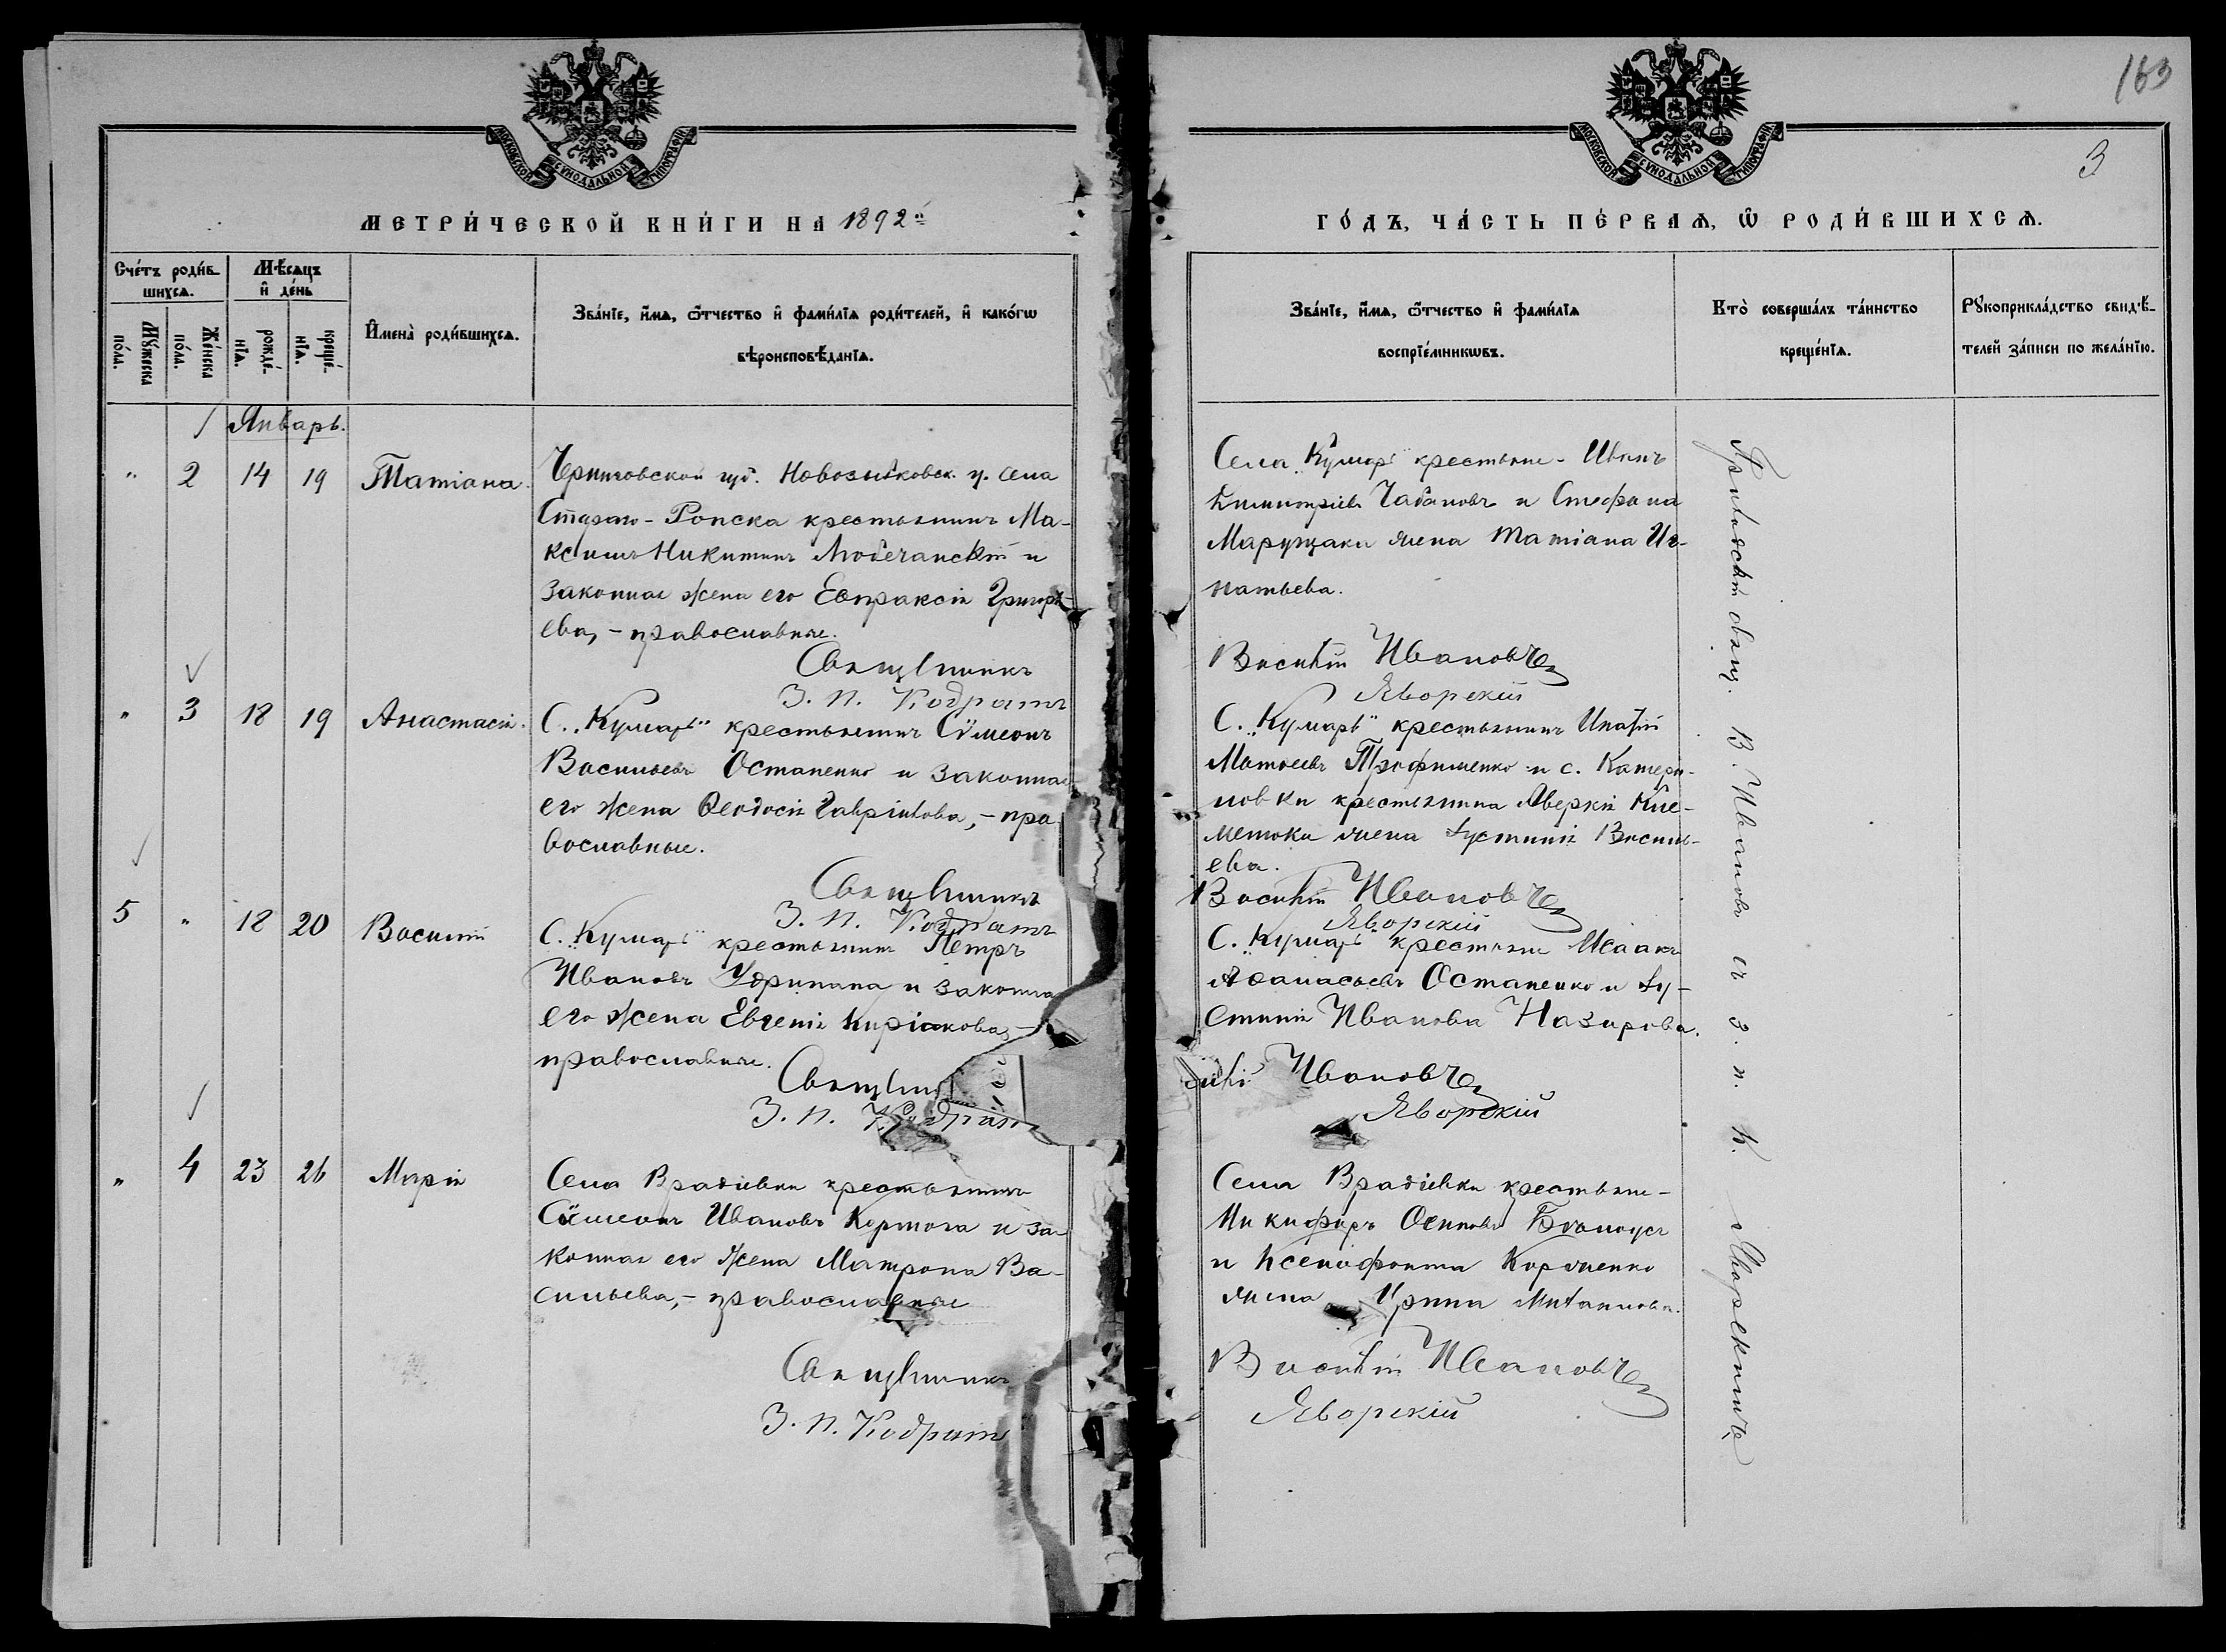 163
3
МОСКОВСКОЙ СѴНОДАЛЬНОЙ ТИПОГРАФІИ
МОСКОВСКОЙ СѴНОДАЛЬНОЙ ТИПОГРАФІИ
МЕТРИ́ЧЕСКОЙ КНИ́ГИ НА 1892й
ГО́ДЪ, ЧА́СТЬ ПЕ́РВАѦ, Ѡ РОДИ́ВШИХСѦ.
Сче́тъ роди́в-
шихсѧ.
Мꙋ́жеска
по́ла.
Же́нска
по́ла.
Мѣ́сѧцъ
и҆ де́нь
рожде́-
нїѧ.
креще́-
нїѧ.
И҆мена̀ роди́вшихсѧ.
Зва́нїе, и҆́мѧ, ѻ҆́тчество и҆ фами́лїѧ роди́телей, и҆ како́гѡ
вѣроисповѣ́данїѧ.
Зва́нїе, и҆́мѧ, ѻ҆́тчество и҆ фами́лїѧ
воспрїе́мникѡвъ.
Кто̀ соверша́лъ та́инство
креще́нїѧ.
Рꙋкоприкла́дство свидѣ́-
телей за́писи по жела́нїю.
Январь.
" 2 14 19 Татіана.
Черниговской губ. Новозыбковск. у. села
Стараго-Ропска крестьянинъ Ма-
ксимъ Никитинъ Любечанскій и
законная жена его Евпраксія Григорь-
ева, – православные.
Священникъ
З. П. Кодратъ
Села "Кумары" крестьяне - Иванъ
Димитріевъ Чабановъ и Стефана
Марущака жена Татіана Иг-
натьева.
Василій Ивановъ
Яворскій
" 3 18 19 Анастасія.
С. "Кумары" крестьянинъ Сѵмеонъ
Васильевъ Остапенко и законная
его жена Ѳеодосія Гавріилова, – пра
вославные.
Священникъ
З. П. Кодратъ
С. "Кумары" крестьянинъ Ипатій
Матѳеевъ Трофименко и с. Катери-
новки крестьянина Аверкія
жена Іустинія Василь-
ева.
Василій Ивановъ
Яворскій
5 " 18 20 Василій
С. "Кумары" крестьянинъ Петръ
Ивановъ и законная
его жена Евгенія Киріакова, –
православные.
З. П. Кодратъ
С. "Кумары" крестьяне Исаакъ
Аѳанасьевъ Остапенко и Іу-
стинія Иванова Назарова.
Ивановъ
Яворскій
" 4 23 26 Марія
Села Врадіевки крестьянинъ
Сѵмеонъ Ивановъ Кортога и за-
конная его жена Матрона Ва-
сильева, – православные
Священникъ
З. П. Кодратъ
Села Врадіевки крестьяне -
Никифоръ Осиповъ Бѣлоусъ
и Ксенофонта Корніенко
жена Ирина
Василій Ивановъ
Яворскій
свящ. В. Ивановъ съ з. п. К. Яворскимъ